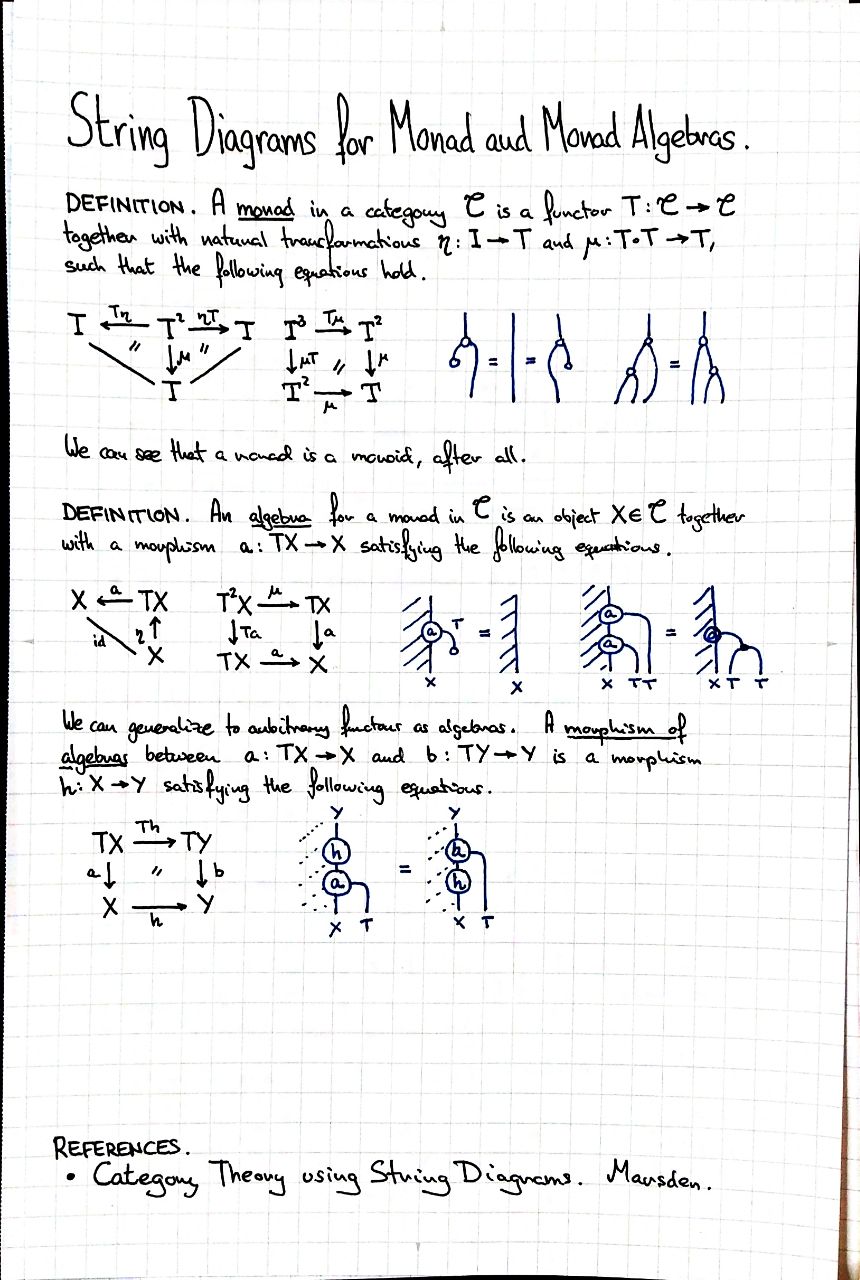 String Diagrams for Monad and Monad Algebras.
DEFINITION. A monad in a category C is a functor T: C → C
together with natural transformations η: I → T and μ: T∘T → T,
such that the following equations hold.
T ←Tη— T² —ηT→ T T³ —Tμ→ T²
// ↓μ // ↓μT // ↓μ = = =
T T² —μ→ T
We can see that a monad is a monoid, after all.
DEFINITION. An algebra for a monad in C is an object X∈C together
with a morphism a: TX → X satisfying the following equations.
X ←a— TX T²X —μ→ TX
id η↑ ↓Ta ↓a a T = a a = a
X TX —a→ X X X X T T X T T
We can generalize to arbitrary functors as algebras. A morphism of
algebras between a: TX → X and b: TY → Y is a morphism
h: X → Y satisfying the following equations.
TX —Th→ TY Y Y
a↓ // ↓b h a = b h
X —h→ Y X T X T
REFERENCES.
• Category Theory using String Diagrams. Marsden.